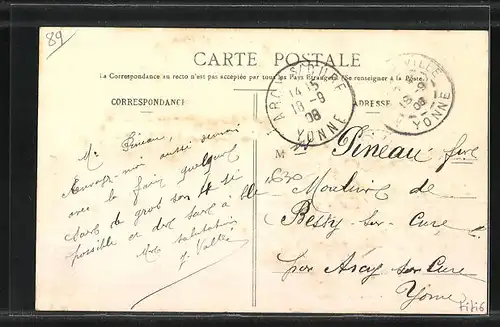 89
CARTE POSTALE
La Correspondance au recto n'est pas acceptée par tous les Pays Étrangers (Se renseigner à la Poste.)
CORRESPONDANCE
ADRESSE
ARCY S/CURE
14 15
18 - 9
08
YONNE
VILLE
08
YONNE
Mr Pineau,
Envoyez-moi aussi
avec la farine quelques
sacs de gros son et si
possible des sacs à blé
Mes salutations
J. Vallée
M
Pineau
Moulins de
Bessy sur Cure
par Arcy sur Cure
Yonne